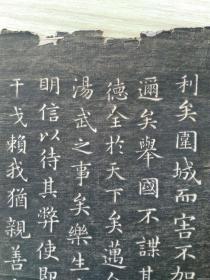 利矣圍城而害不加
邇矣舉國不謀其
德全於天下矣邁全
湯武之事矣樂生
明信以待其弊使即
干戈賴我猶親善